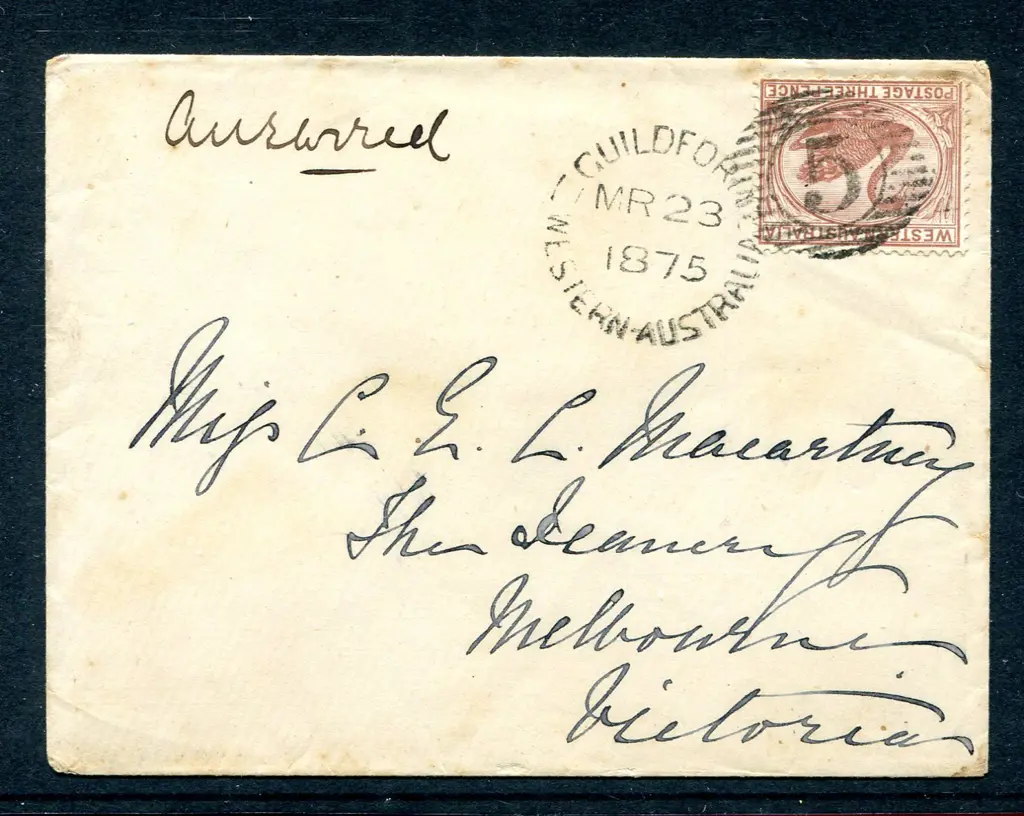 Answered
POSTAGE THREE PENCE
WESTERN AUSTRALIA
5
GUILDFORD
MR 23
1875
WESTERN-AUSTRALIA
Miss C. E. L. Macartney
The Deanery
Melbourne
Victoria